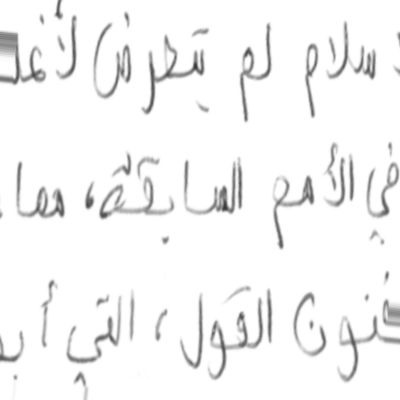 سلام لم يتطرق لأغلـ
في الأمم السابقة، مما
فنون القول، التي أبد